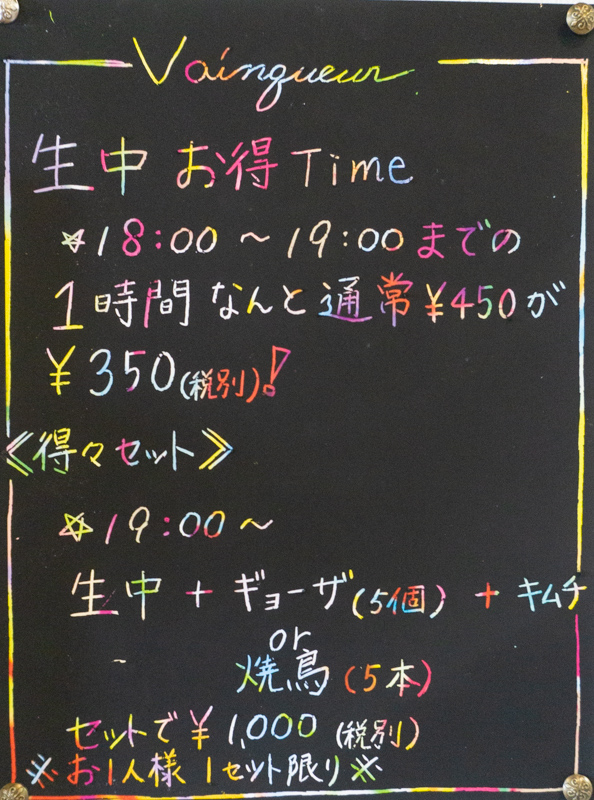 Vainqueur
生中 お得 Time
☆18:00 ~ 19:00 までの
1時間 なんと 通常 ¥450が
¥350(税別)!
《得々セット》
☆19:00~
生中 + ギョーザ(5個) + キムチ
or
焼鳥(5本)
セットで ¥1,000 (税別)
※お1人様 1セット限り※